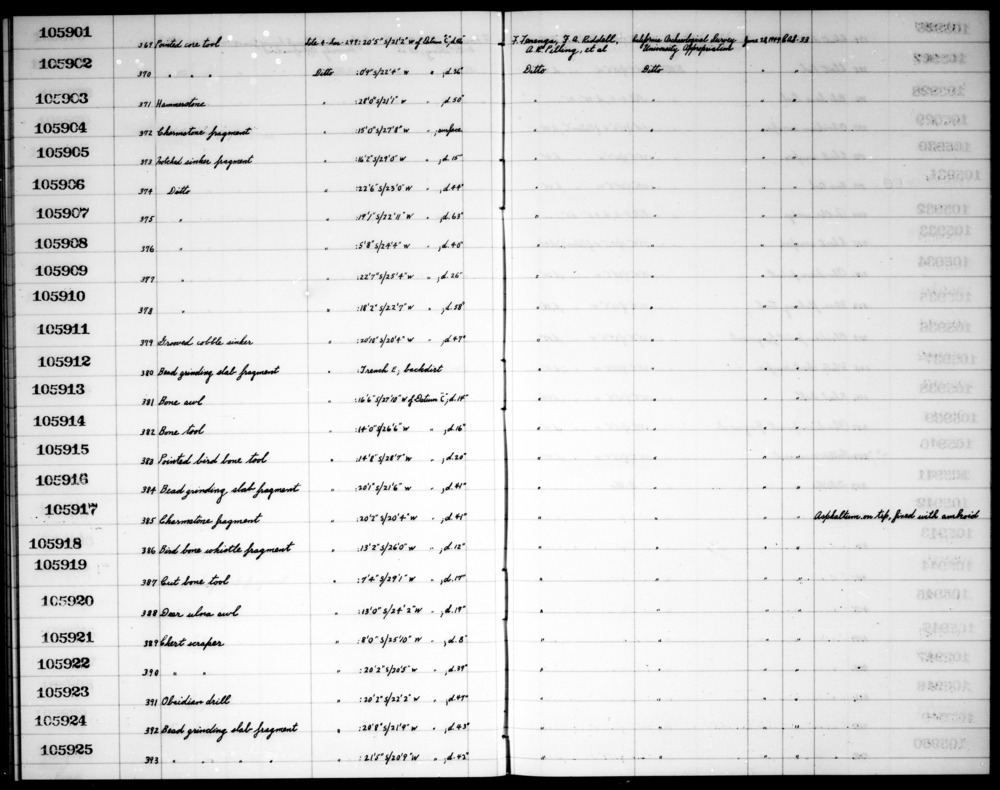 105901 369 Pointed core tool Site 4- :20'5" S/21'2" W of Datum "C", F. Fenenga, F. A. Riddell, California Archaeological Survey June 28, 1949
A. R. Pilling, et al University Appropriation
105902 370 " " " Ditto :0'9" S/22'4" W " , d. 36" Ditto Ditto " "
105903 371 Hammerstone " :28'0" S/21'1" W " , d. 50" " " " "
105904 372 Charmstone fragment " :15'0" S/27'8" W " , surface " " " "
105905 373 Notched sinker fragment " :16'2" S/29'0" W " , d. 15" " " " "
105906 374 Ditto " :22'6" S/23'0" W " , d. 44" " " " "
105907 375 " " :19'1" S/22'11" W " , d. 63" " " " "
105908 376 " " :5'8" S/24'4" W " , d. 40" " " " "
105909 377 " " :22'7" S/25'4" W " , d. 26" " " " "
105910 378 " " :18'2" S/22'7" W " , d. 58" " " " "
105911 379 Grooved cobble sinker " :20'10" S/20'4" W " , d. 47" " " " "
105912 380 Bead grinding slab fragment " :Trench E, backdirt " " " "
105913 381 Bone awl " :16'6" S/27'10" W of Datum "C", d. 14" " " " "
105914 382 Bone tool " :14'0" S/26'6" W " , d. 16" " " " "
105915 383 Pointed bird bone tool " :14'8" S/28'7" W " , d. 20" " " " "
105916 384 Bead grinding slab fragment " :20'1" S/21'6" W " , d. 41" " " " "
105917 385 Charmstone fragment " :20'2" S/20'4" W " , d. 41" " " " " Asphaltum on tip, fixed with ambroid
105918 386 Bird bone whistle fragment " :13'2" S/26'0" W " , d. 12" " " " "
105919 387 Cut bone tool " :7'4" S/29'1" W " , d. 17" " " " "
105920 388 Deer ulna awl " :13'0" S/24'2" W " , d. 19" " " " "
105921 389 Chert scraper " :8'0" S/25'10" W " , d. 8" " " " "
105922 390 " " " :20'2" S/20'5" W " , d. 39" " " " "
105923 391 Obsidian drill " :20'2" S/22'2" W " , d. 47" " " " "
105924 392 Bead grinding slab fragment " :20'8" S/21'9" W " , d. 43" " " " "
105925 393 " " " " " :21'5" S/20'9" W " , d. 42" " " " "